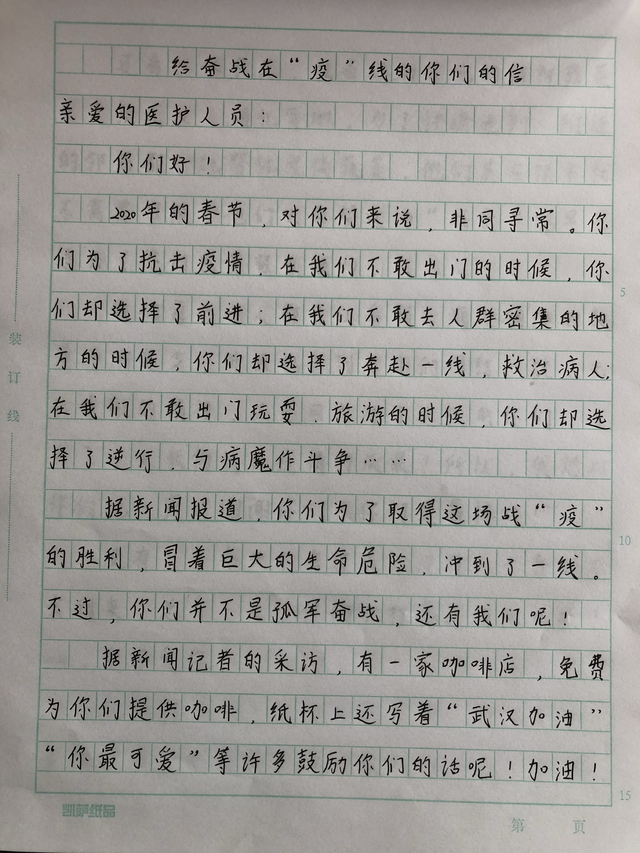 给奋战在“疫”线的你们的信
亲爱的医护人员：
你们好！
2020年的春节，对你们来说，非同寻常。你
们为了抗击疫情，在我们不敢出门的时候，你
们却选择了前进；在我们不敢去人群密集的地
方的时候，你们却选择了奔赴一线，救治病人；
在我们不敢出门玩耍、旅游的时候，你们却选
择了逆行，与病魔作斗争……
据新闻报道，你们为了取得这场战“疫”
的胜利，冒着巨大的生命危险，冲到了一线。
不过，你们并不是孤军奋战，还有我们呢！
据新闻记者的采访，有一家咖啡店，免费
为你们提供咖啡，纸杯上还写着“武汉加油”
“你最可爱”等许多鼓励你们的话呢！加油！
装订线
5
10
15
凯萨纸品
第 页